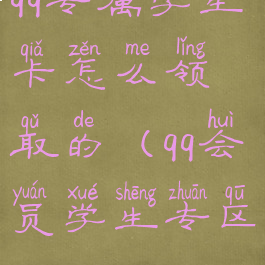 qq专属学生
qiǎ zěn me lǐng
卡怎么领
qǔ de huì
取的(qq会
yuán xué shēng zhuān qū
员学生专区